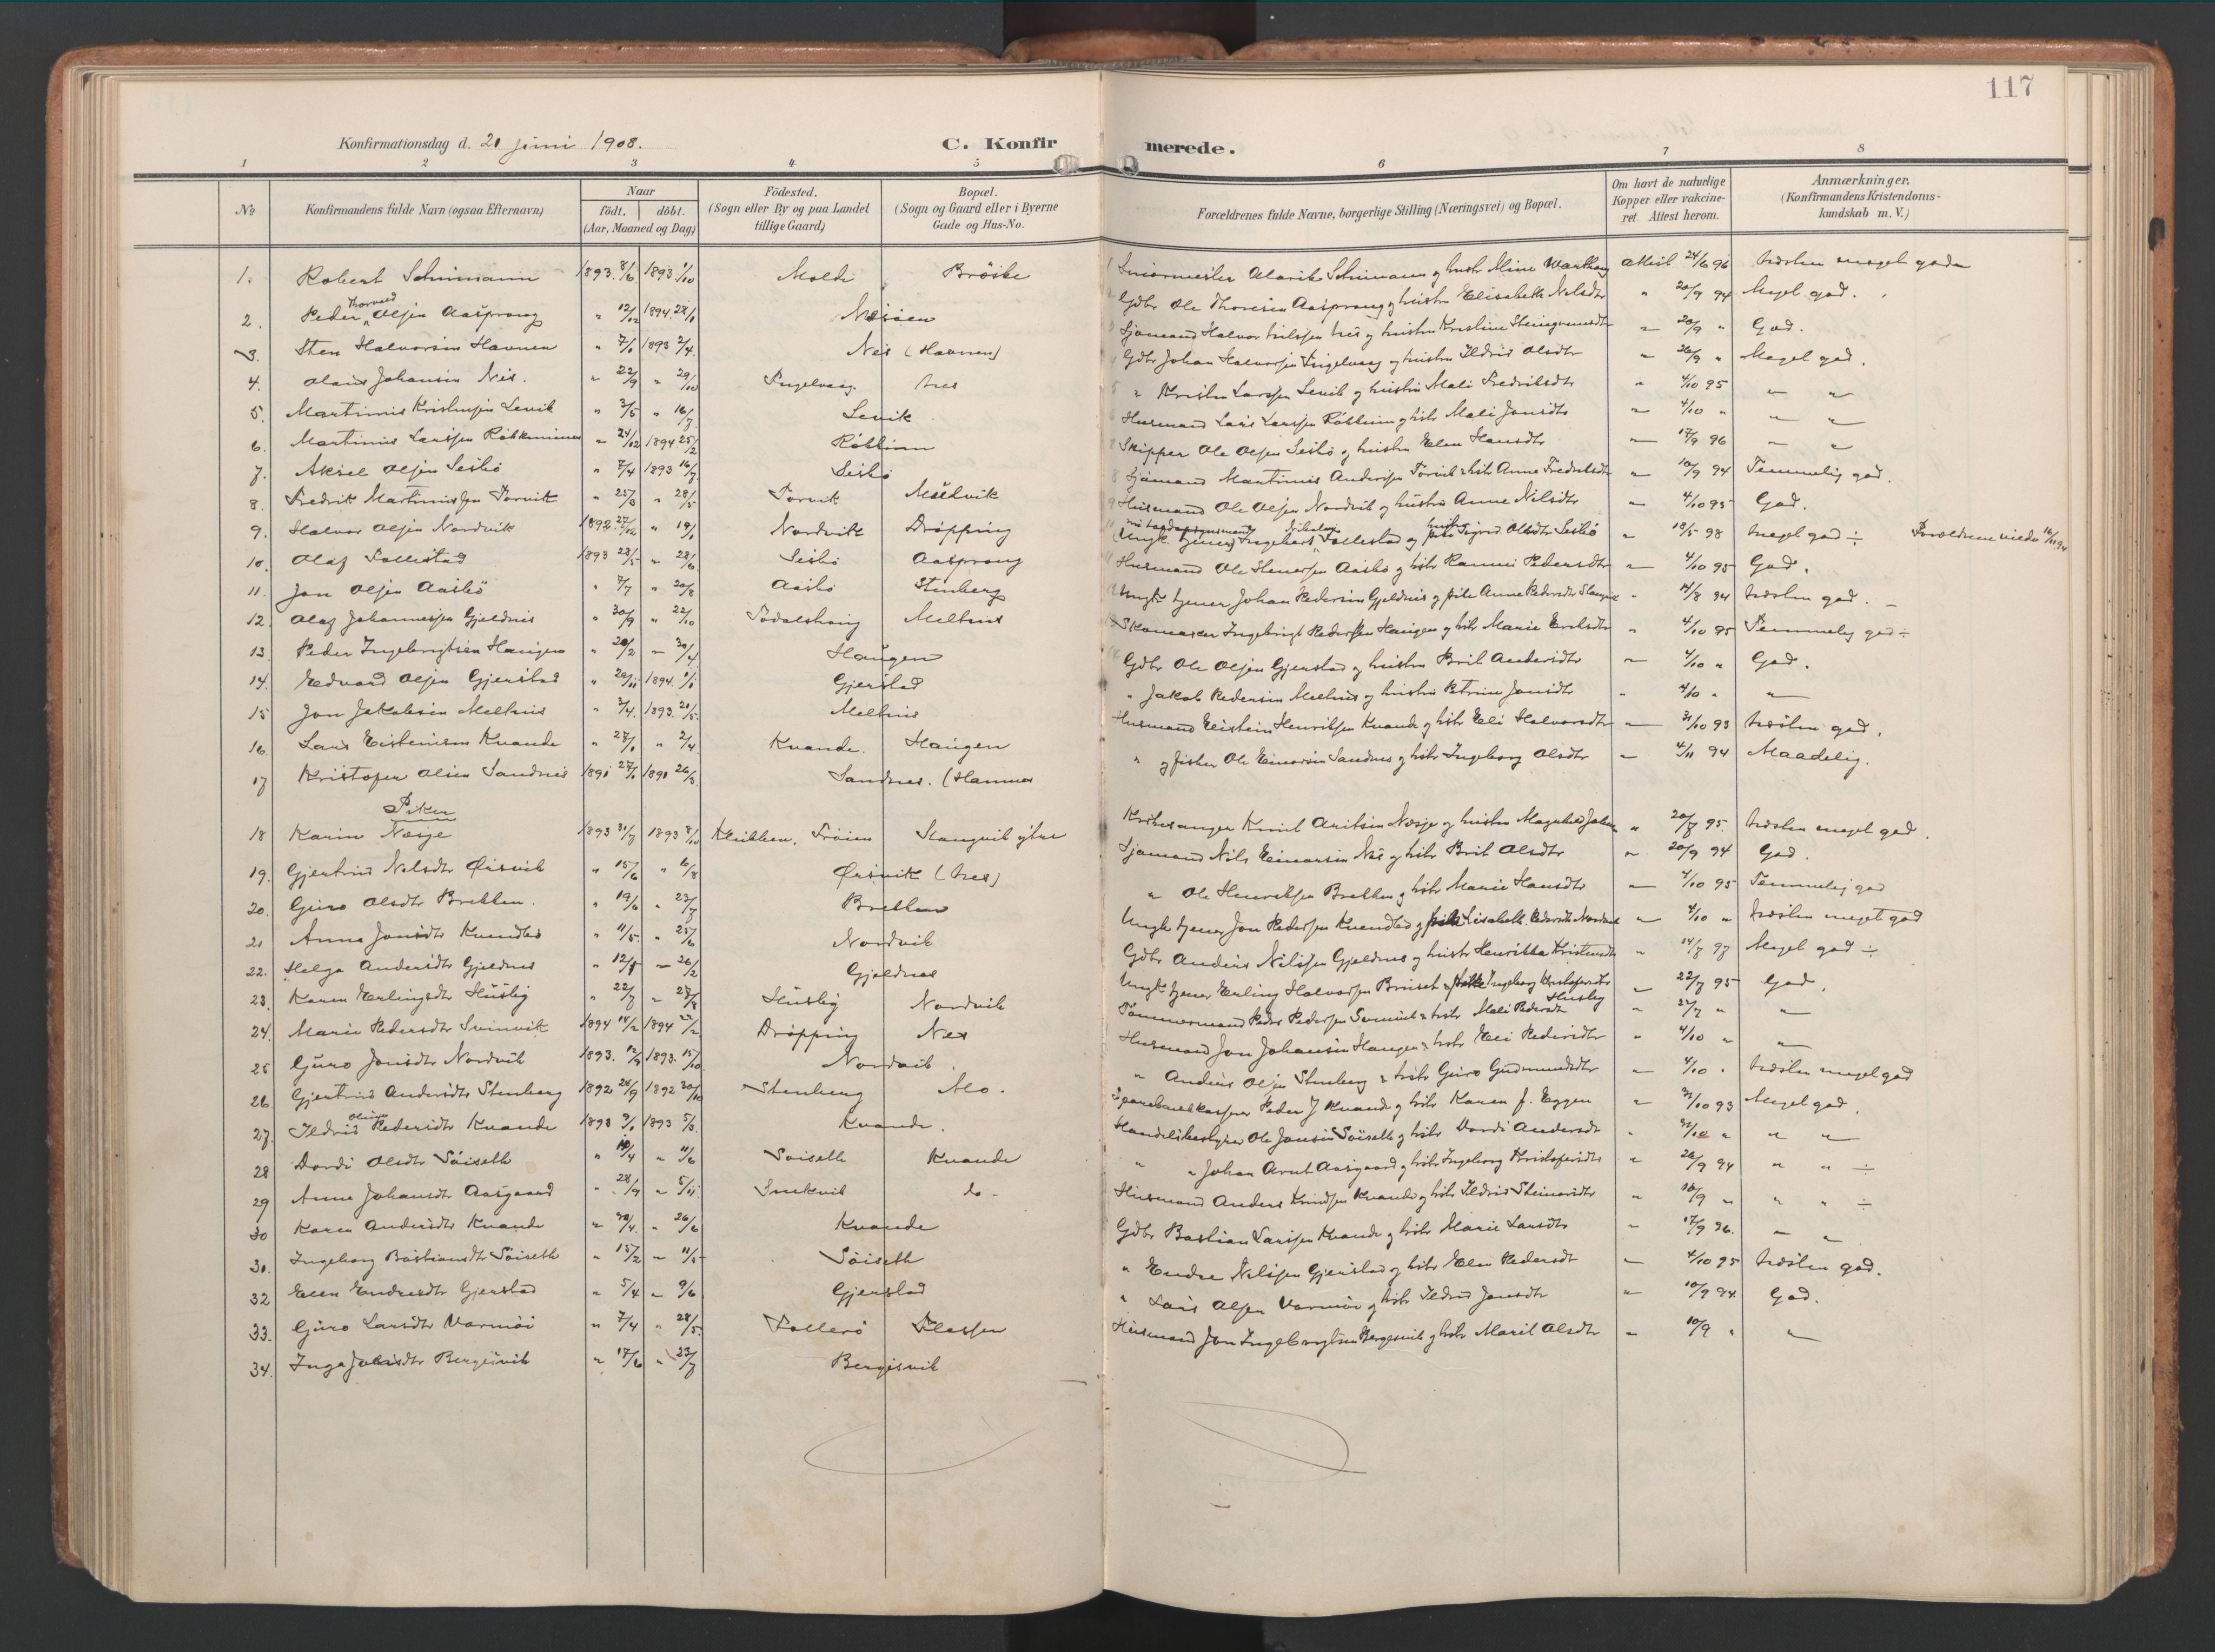 117
Konfirmationsdag d. 21 juni 1908.
C. Konfirmerede.
1 2 3 4 5 6 7 8
No
Konfirmandens fulde Navn (ogsaa Efternavn)
Naar
födt. döbt.
(Aar, Maaned og Dag)
Födested.
(Sogn eller By og paa Landet
tillige Gaard)
Bopæl.
(Sogn og Gaard eller i Byerne
Gade og Hus-No.
Forældrenes fulde Navne, borgerlige Stilling (Næringsvei) og Bopæl.
Om havt de naturlige
Kopper eller vakcine-
ret Attest herom.
Anmærkninger.
(Konfirmandens Kristendoms-
kundskab m. V.)
1. Robert Schumann 1893 8/6 1893 1/10 Molde Bröske attest 24/6 96
2. Peder Thorvald Olsen Aasprong " 12/12 1894 28/1 Gdbr Ole Thoresen Aasprong g hustru Elisabeth Nilsdtr " 20/9 94 Meget god.
3. Sten Halvorsen Havnen " 7/1 1893 2/4 Nes (Havnen) " 20/9 " God.
4. Olaus Johansen Nes. " 22/9 " 29/10 Ingelvaag Nes Gdbr Johan Halvorsen Ingelvaag g hustru Ildrid Olsdtr " 20/9 " Meget god.
5. Martinus Kristensen Levik " 3/5 " 16/7 Levik " Kristen Larssen Levik g hustru Mali Fredriksdtr " 4/10 95 " "
6. Martinus Larssen " 24/12 1894 25/2 Husmand Lars Larssen g hstr Mali Jonsdtr " 4/10 " " "
7. Aksel Olsen Lesbö " 7/4 1893 16/7 Lesbö Skipper Ole Olsen Lesbö g hustru Elen Hansdtr " 17/9 96 " "
8. Fredrik Martinussen Torvik " 25/3 " 28/5 Torvik Mülvik Sjömand Martinus Andersen Torvik g hstr Anne Fredriksdtr " 10/9 94 Temmelig god.
9. Halvor Olsen Nordvik 1892 27/12 " 19/1 Nordvik Dröpping Husmand Ole Olsen Nordvik g hustru Anne Nilsdtr " 4/10 95 God.
10. Olaf Follestad 1893 23/5 " 28/6 Lesbö Aasprong Ungk. tjener Ingebert Follestad og Sigrid Olsdtr Lesbö " 18/5 98 Meget god ÷ Forældrene viede
11. Jon Olsen Aasbö " 7/7 " 20/8 Aasbö Stenberg Husmand Ole Stenersen Aasbö g hstr Ranni Pedersdtr " 4/10 95 God.
12. Olaf Johannessen Gjeldnes " 30/9 " 22/10 Södalshaug Melhus Ungk tjener Johan Pedersen Gjeldnes g pike Anne Pedersdtr " 14/8 94 Næsten god.
13. Peder Ingebrigtsen Haugen " 20/2 " 30/4 Haugen Skomaker Ingebrigt Pedersen Haugen g hstr Marie Eriksdtr " 4/10 95 Temmelig god ÷
14. Edvard Olsen Gjerstad " 20/11 1894 1/1 Gjerstad Gdbr Ole Olsen Gjerstad g hustru Brit Andersdtr " 4/10 " God.
15 Jon Jakobsen Melhus " 3/4 1893 21/5 Melhus " Jakob Pedersen Melhus g hustru Petrine Jonsdtr " 4/10 " "
16 Lars Eistensen Kvande " 27/1 " 2/4 Kvande. Haugen Husmand Eistein Henriksen Kvande g hstr Eli Halvorsdtr " 31/10 93 Næsten god.
17 Kristofer Olsen Sandnes 1891 27/1 1891 26/3 Sandnes. (Hamnes " g fisker Ole Einarsen Sandnes g hstr Ingeborg Olsdtr " 4/11 94 Maadelig.
Piker
18 Karin Næsje 1893 31/7 1893 8/10 Stangvik ytre " 20/7 95. Næsten meget god.
19. Gjertrud Nilsdtr Örsvik " 15/6 " 6/8 Örsvik (Nes) Sjömand Nils Einarsen Nes g hstr Brit Olsdtr " 20/9 94 God.
20. Guro Olsdtr Brekken. " 19/6 " 23/7 Brekken " Ole Henriksen Brekken g hstr Marie Hansdtr " 4/10 95 Temmelig god
21 Anne Jonsdtr " 11/5 " 25/6 Nordvik " 4/10 " Næsten meget god
22. Helga Andersdtr Gjeldnes " 12/1 " 26/2 Gjeldnes Gdbr Anders Nilssen Gjeldnes g hustr Henrikka Kristensdtr " 14/7 97 Meget god ÷
23. Karen Erlingsdtr Husby " 22/7 " 27/8 Husby Nordvik Ungk tjener Erling Halvorsen g pike Ingeborg Kristofersdtr Husby " 22/7 95 God.
24. Marie Pedersdtr Svinvik 1894 14/2 1894 Dröpping Nes Tömmermand Peder Pedersen Svinvik g hstr Mali Pedersdtr " 22/7 " "
25 Guro Jonsdtr Nordvik 1893. 12/9 1893. 15/10 Nordvik Husmand Jon Johansen Haugen g hstr Eli Pedersdtr " 4/10 " "
26 Gjertrud Andersdtr Stenberg 1892 24/9 1892 30/10 Stenberg Mo. " Anders Olsen Stenberg g hstr Guro Gudmundsdtr " 4/10 " Næsten meget god
27. Ildrid Pedersdtr Kvande 1893 9/1 1893 5/3 Kvande. Sparebankkasserer Peder J Kvande g hstr Karen J. Eggen " 31/10 93 Meget god.
28 Dordi Olsdtr Söiseth " 10/4 " 11/6 Söiseth Kvande Handelsbestyrer Ole Jonsen Söiseth g hstr Dordi Andersdtr " 31/10 " " "
29 Anne Johansdtr Aasgaard " 28/9 " 5/11 do - " " Johan Arnt Aasgaard g hstr Ingeborg Kristofersdtr " 20/9 94 " " ÷
30 Karen Andersdtr Kvande " 30/4 " 26/6 Kvande Husmand Anders Knudsen Kvande g hstr Ildrid Steinarsdtr " 10/9 " " " ÷
31. Ingeborg Bastiansdtr Söiseth " 15/2 " 11/5 Söiseth Gdbr Bastian Larssen Kvande g hstr Marie Larsdtr " 17/9 96. " "
32 Elen Endresdtr Gjerstad " 5/4 " 9/6 Gjerstad " Endre Nilssen Gjerstad g hstr Elen Pedersdt " 4/10 95 Næsten god.
33. Guro Larsdtr Varmöi " 7/4 " 28/5. " Lars Olsen Varmöi g hstr Ildrid Jonsdtr " 10/9 94 God.
34. Inga Jonsdtr Bergisvik " 17/6 " 23/7 Bergisvik Husmand Jon Ingebrigtsen Bergesvik g hstr Marit Olsdtr " 10/9 " "